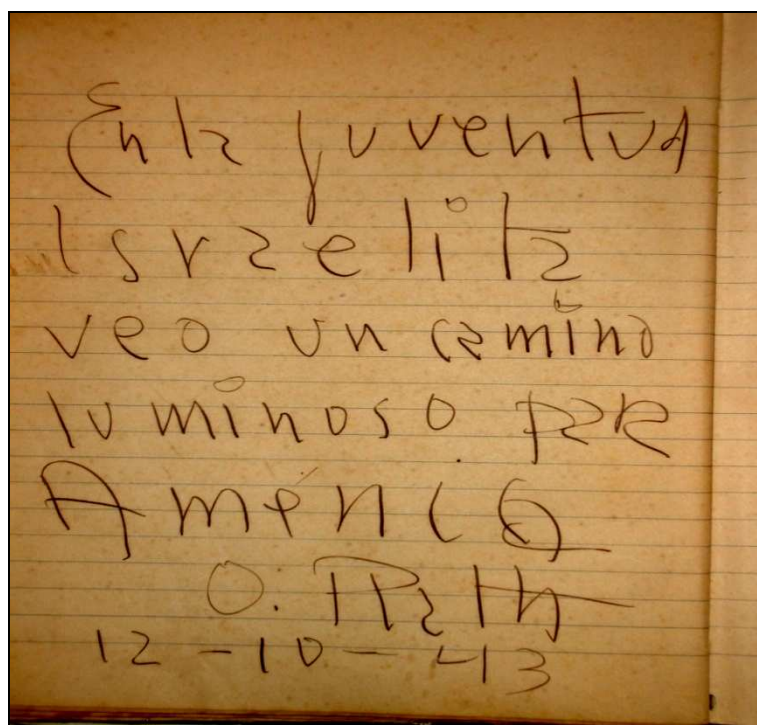 En la juventud
Israelita
veo un camino
luminoso para
América
O.
12-10-43